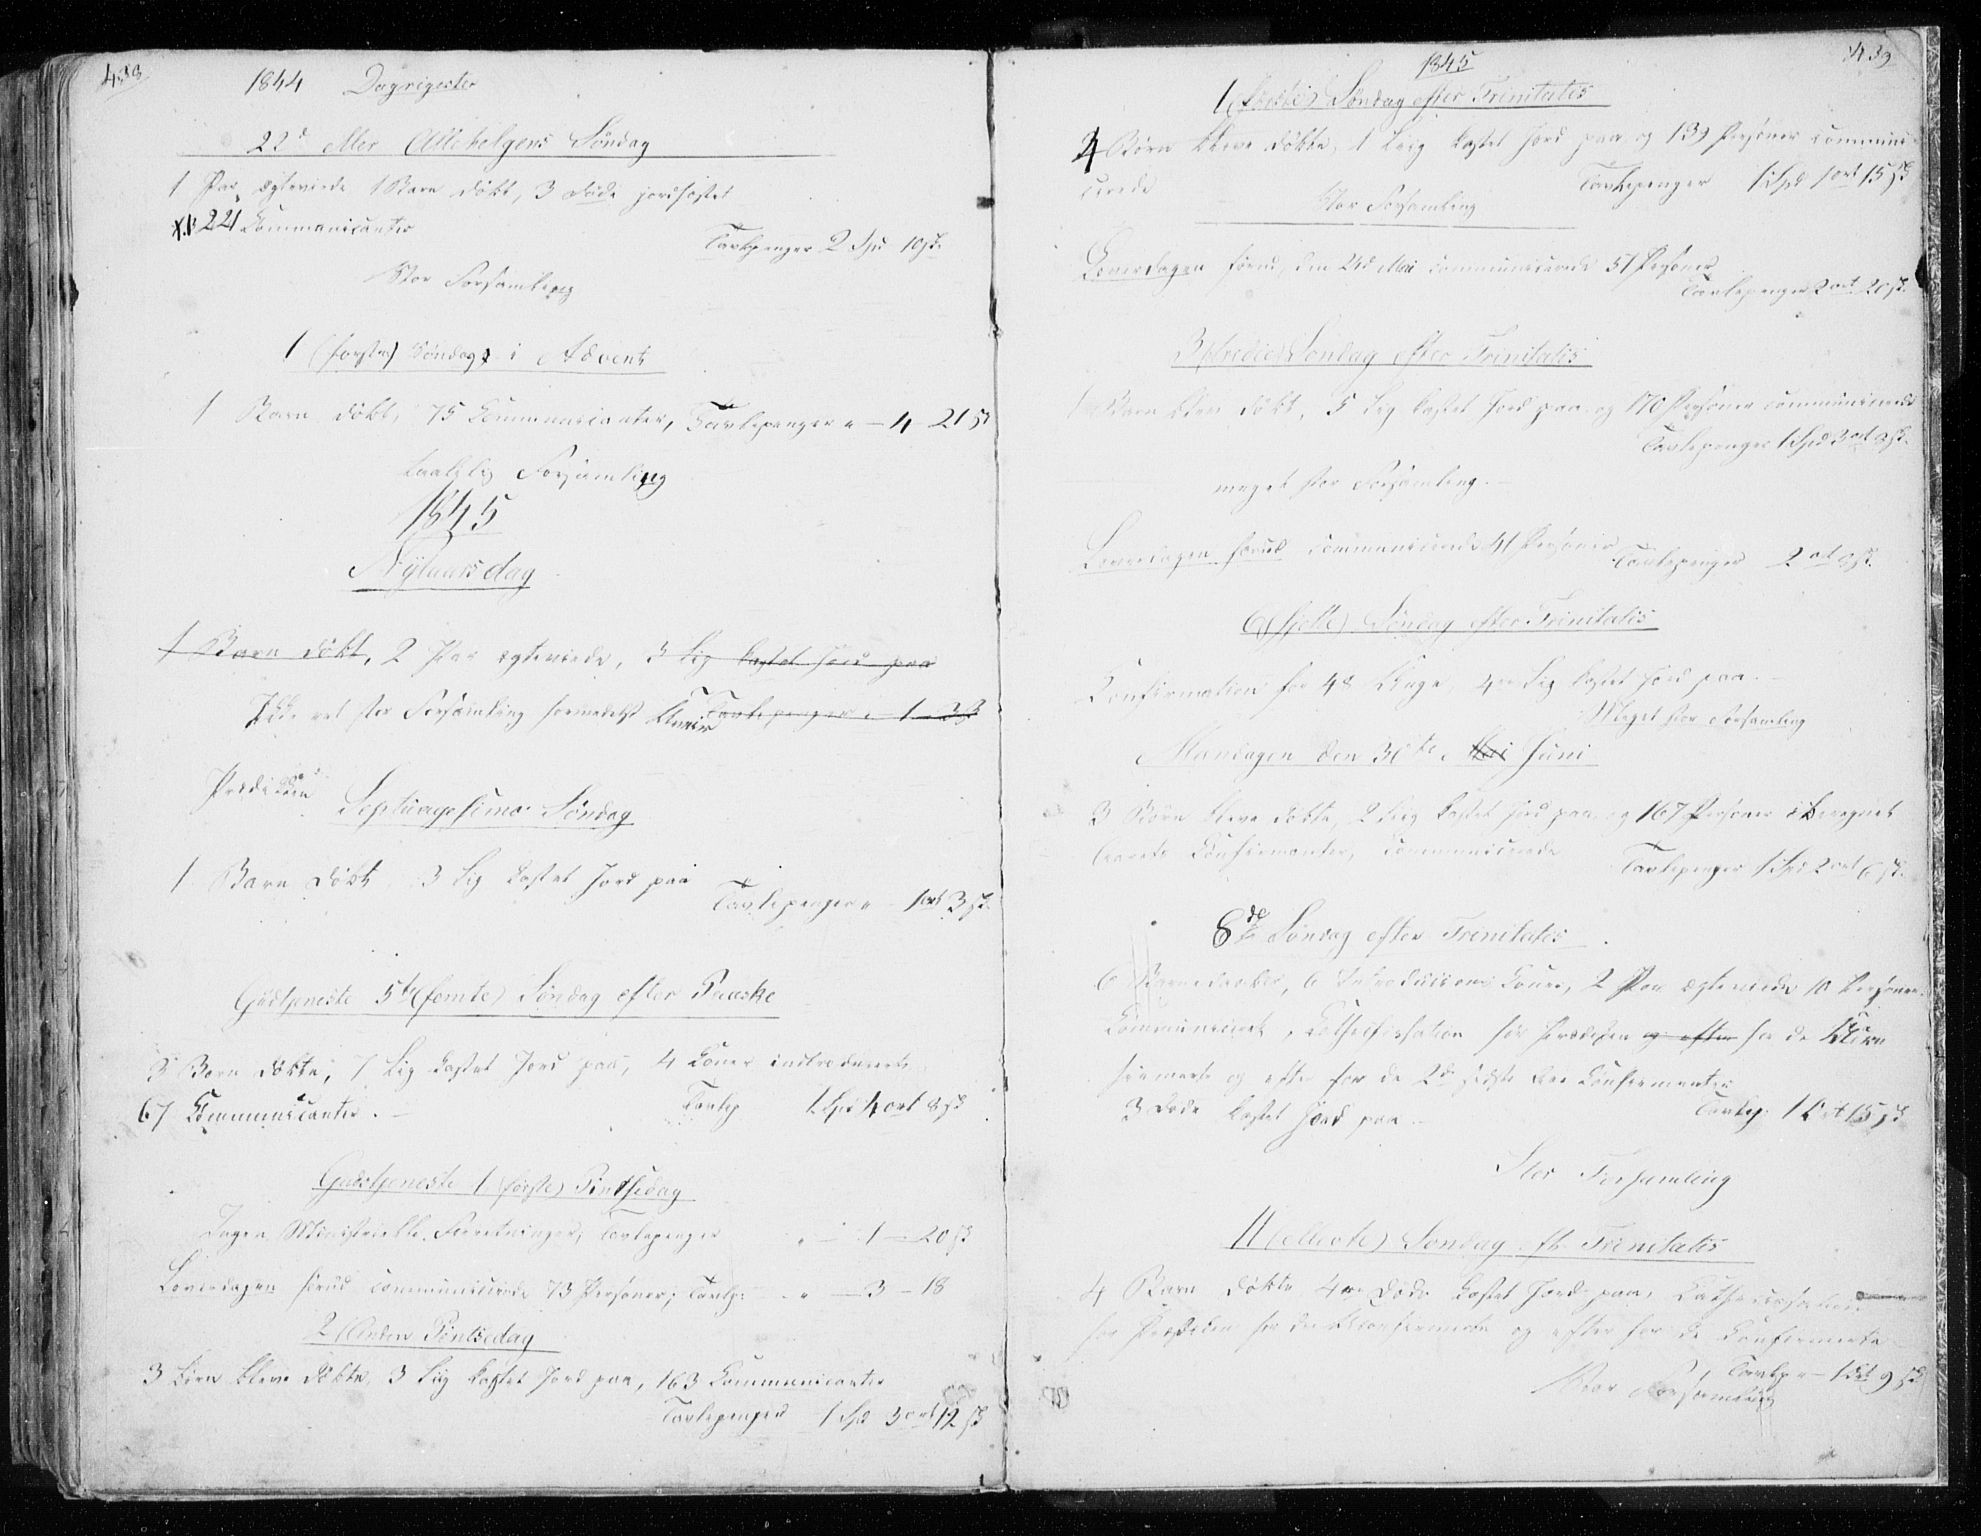 438
1844 Dagregister
22d eller Allehelgens Søndag
1 Par egteviede 1 Barn døbt, 3 Døde jordfæstet
221 Communicanter
Tavlepenger 2 Spd 10 sk
Stor Forsamling
1 (første) Søndag i Advent
1 Barn døbt, 75 Communicanter, Tavlepenger " – 4 – 21 sk
taalelig Forsamling
1845
Nytaarsdag
1 Barn døbt, 2 Par egteviede, 3 Lig kastet Jord paa
Ikke ret stor Forsamling formedelst
Tavlepenger " 1 – 3 sk
Septuagesima Søndag
1 Barn døbt 3 Lig kastet Jord paa
Tavlepenger " 1 ort 3 sk
Gudstjeneste 5te (femte) Søndag efter Paaske
3 Børn døbte, 7 Lig kastet Jord paa, 4 Koner introducerede
67 Communicanter. –
Tavlep 1 Spd 4 ort 8 sk
Gudstjeneste 1 (første) Pintsedag
Ingen Ministrielle Forretninger, Tavlepenger " – 1 – 20 sk
Løverdagen forud communicerede 73 Personer; Tavlp: " – 3 – 18
2 (Anden Pintsedag
3 Børn bleve døbte, 3 Liig kastet Jord paa, 163 Communicanter
Tavlepenger 1 Spd 3 ort 12 sk
439
1845
1 (første) Søndag efter Trinitatis
4 Børn bleve døbte, 1 Liig kastet Jord paa og 139 Personer communi-
cerede
Tavlepenger 1 Spd 1 ort 15 sk
Stor Forsamling
Løverdagen forud, den 24d Mai communicerede 57 Personer
Tavlepenger 2 ort 20 sk.
3 (tredie) Søndag efter Trinitatis
1 Barn blev døbt, 5 Lig kastet Jord paa og 170 Personer communicerede
Tavlepenger 1 Spd 3 ort 8 sk.
meget stor Forsamling. –
Løverdagen forud communicerede 41 Personer
Tavlepenger 2 ort 8 sk.
6 (sjette) Søndag efter Trinitatis
Confirmation for 48 Unge, 4re Lig kastet Jord paa. –
Meget stor Forsamling
Mandagen den 30te Mai Juni
3 Børn bleve døbte, 2 Liig kastet Jord paa og 167 Personer iberegnet
Confirmanter, communicerede
Tavlepenger 1 Spd 2 ort 6 sk.
8de Søndag efter Trinitatis
6 Barnedaaber, 6 Introductions Koner, 2 Par egteviede 10 Personer
Communiceret, Cathechisation før Prædiken og efter for de
firmerte og efter for de 2de sidste Confirmanter
3 Døde kastet Jord paa –
Tavlep. 1 ort 15 sk
Stor Forsamling
11 (ellevte) Søndag eft. Trinitatis
4 Børn døbte 4re Døde kastet Jord paa, Cathechisation
før Prædiken for de Ukonfirmerte og efter for de Confirmerte
Tavlp " – 1 ort 9 sk
Stor Forsamling